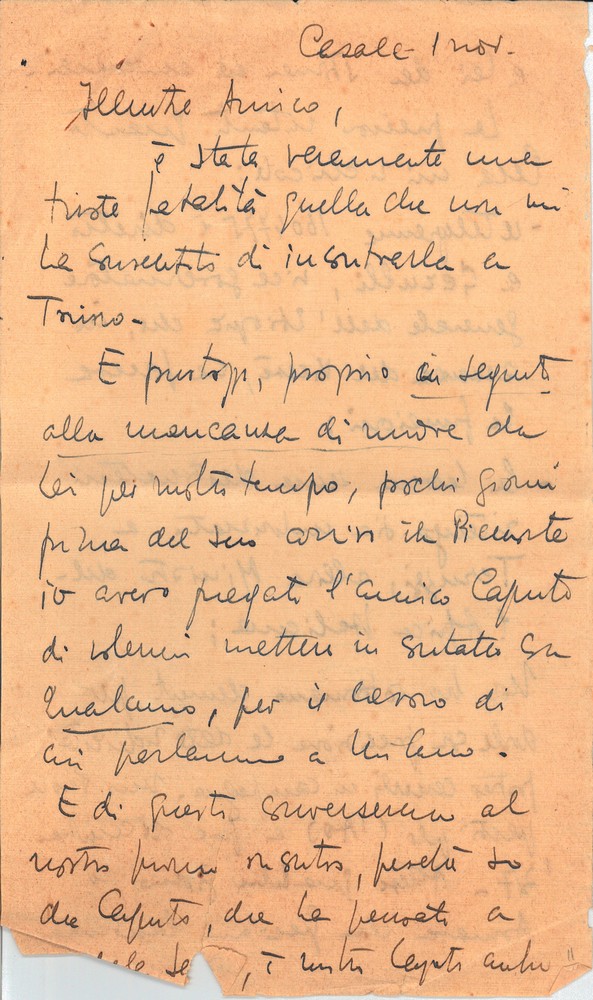 Casale 1 nov.
Illustre Amico,
è stata veramente una
triste fatalità quella che non mi
ha consentito di incontrarla a
Torino -
E purtroppo, proprio in seguito
alla mancanza di nuove da
Lei per molto tempo, pochi giorni
prima del suo arrivo in Piemonte
io avevo pregato l'amico Caputo
di volermi mettere in contatto con
qualcuno, per il lavoro di
cui parlammo a Milano.
E di questo converseremo al
nostro primo incontro, perchè so
che Caputo, che ha pensato a
, è molto legato anche